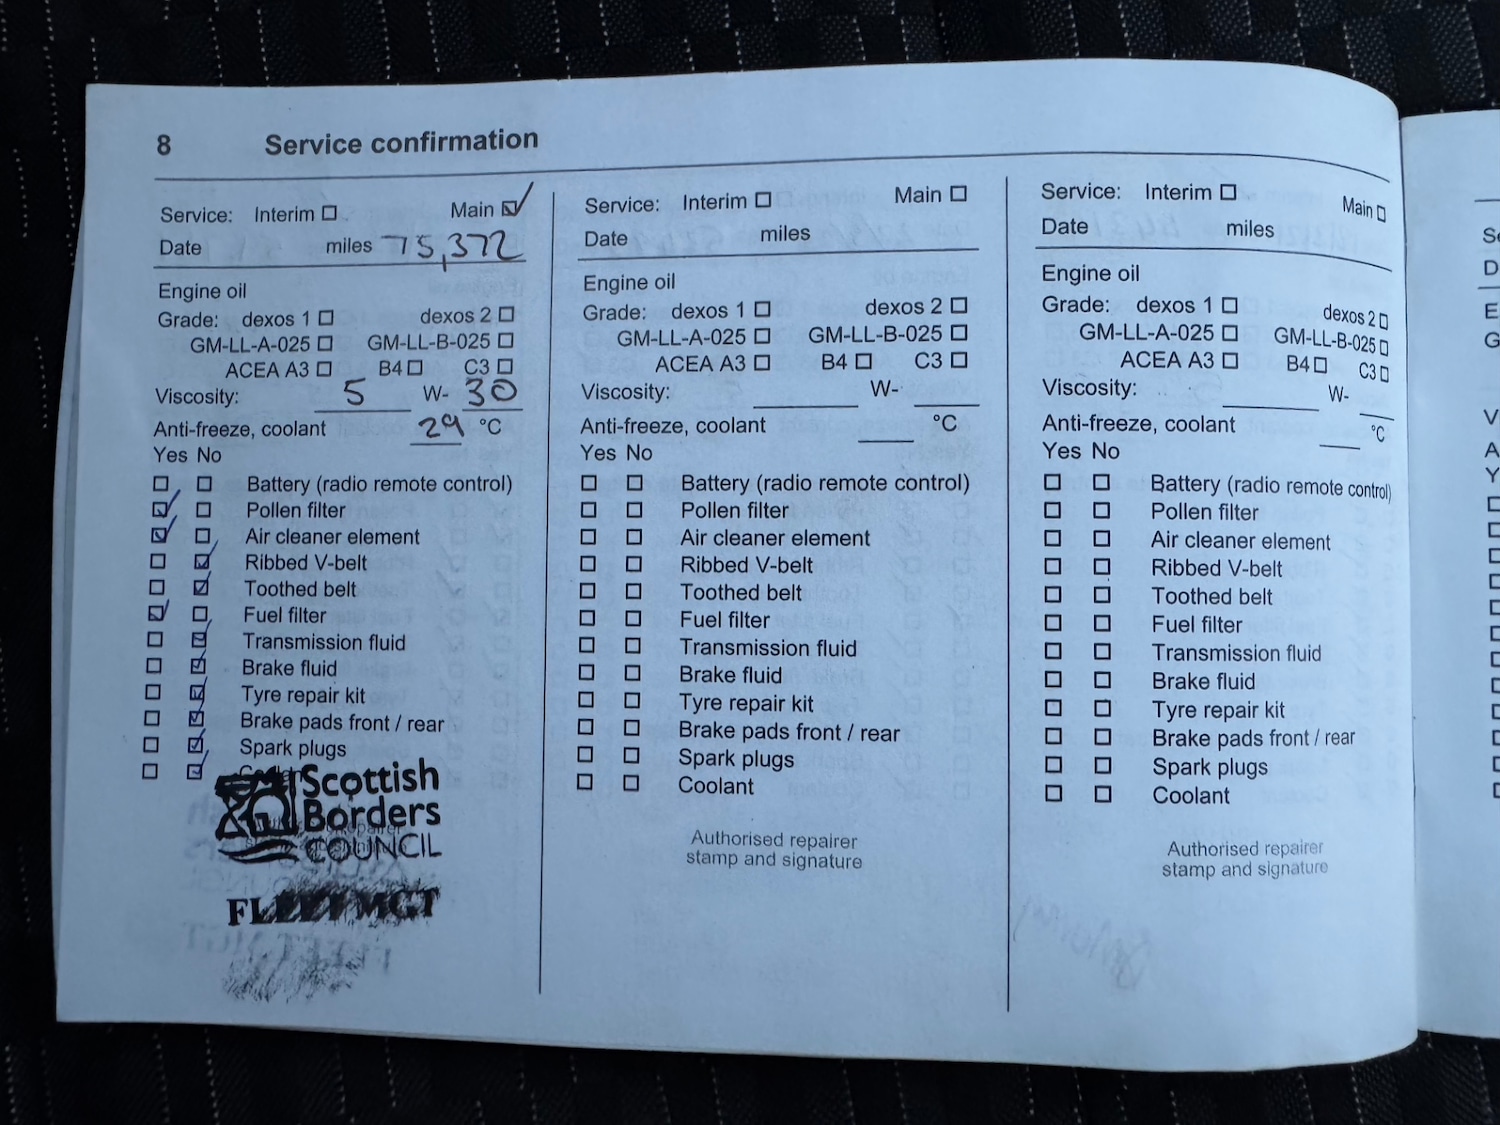 8 Service confirmation
Service: Interim ☐ Main ☑
Date miles 75,372
Engine oil
Grade: dexos 1 ☐ dexos 2 ☐
GM-LL-A-025 ☐ GM-LL-B-025 ☐
ACEA A3 ☐ B4 ☐ C3 ☐
Viscosity: 5 W- 30
Anti-freeze, coolant 29 °C
Yes No
☐ ☐ Battery (radio remote control)
☑ ☐ Pollen filter
☑ ☐ Air cleaner element
☐ ☑ Ribbed V-belt
☐ ☑ Toothed belt
☑ ☐ Fuel filter
☐ ☑ Transmission fluid
☐ ☑ Brake fluid
☐ ☑ Tyre repair kit
☐ ☑ Brake pads front / rear
☐ ☑ Spark plugs
☐ ☑ Coolant
Scottish
Borders
COUNCIL
FLEET MGT
Service: Interim ☐ Main ☐
Date miles
Engine oil
Grade: dexos 1 ☐ dexos 2 ☐
GM-LL-A-025 ☐ GM-LL-B-025 ☐
ACEA A3 ☐ B4 ☐ C3 ☐
Viscosity: W-
Anti-freeze, coolant °C
Yes No
☐ ☐ Battery (radio remote control)
☐ ☐ Pollen filter
☐ ☐ Air cleaner element
☐ ☐ Ribbed V-belt
☐ ☐ Toothed belt
☐ ☐ Fuel filter
☐ ☐ Transmission fluid
☐ ☐ Brake fluid
☐ ☐ Tyre repair kit
☐ ☐ Brake pads front / rear
☐ ☐ Spark plugs
☐ ☐ Coolant
Authorised repairer
stamp and signature
Service: Interim ☐ Main ☐
Date miles
Engine oil
Grade: dexos 1 ☐ dexos 2 ☐
GM-LL-A-025 ☐ GM-LL-B-025 ☐
ACEA A3 ☐ B4 ☐ C3 ☐
Viscosity: W-
Anti-freeze, coolant °C
Yes No
☐ ☐ Battery (radio remote control)
☐ ☐ Pollen filter
☐ ☐ Air cleaner element
☐ ☐ Ribbed V-belt
☐ ☐ Toothed belt
☐ ☐ Fuel filter
☐ ☐ Transmission fluid
☐ ☐ Brake fluid
☐ ☐ Tyre repair kit
☐ ☐ Brake pads front / rear
☐ ☐ Spark plugs
☐ ☐ Coolant
Authorised repairer
stamp and signature